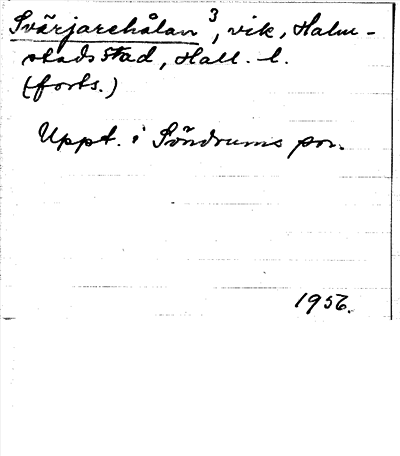 Svärjarehålan 3, vik, Halm-
stads stad, Hall. l.
(forts.)
Uppt. i Söndrums sn.
1956.